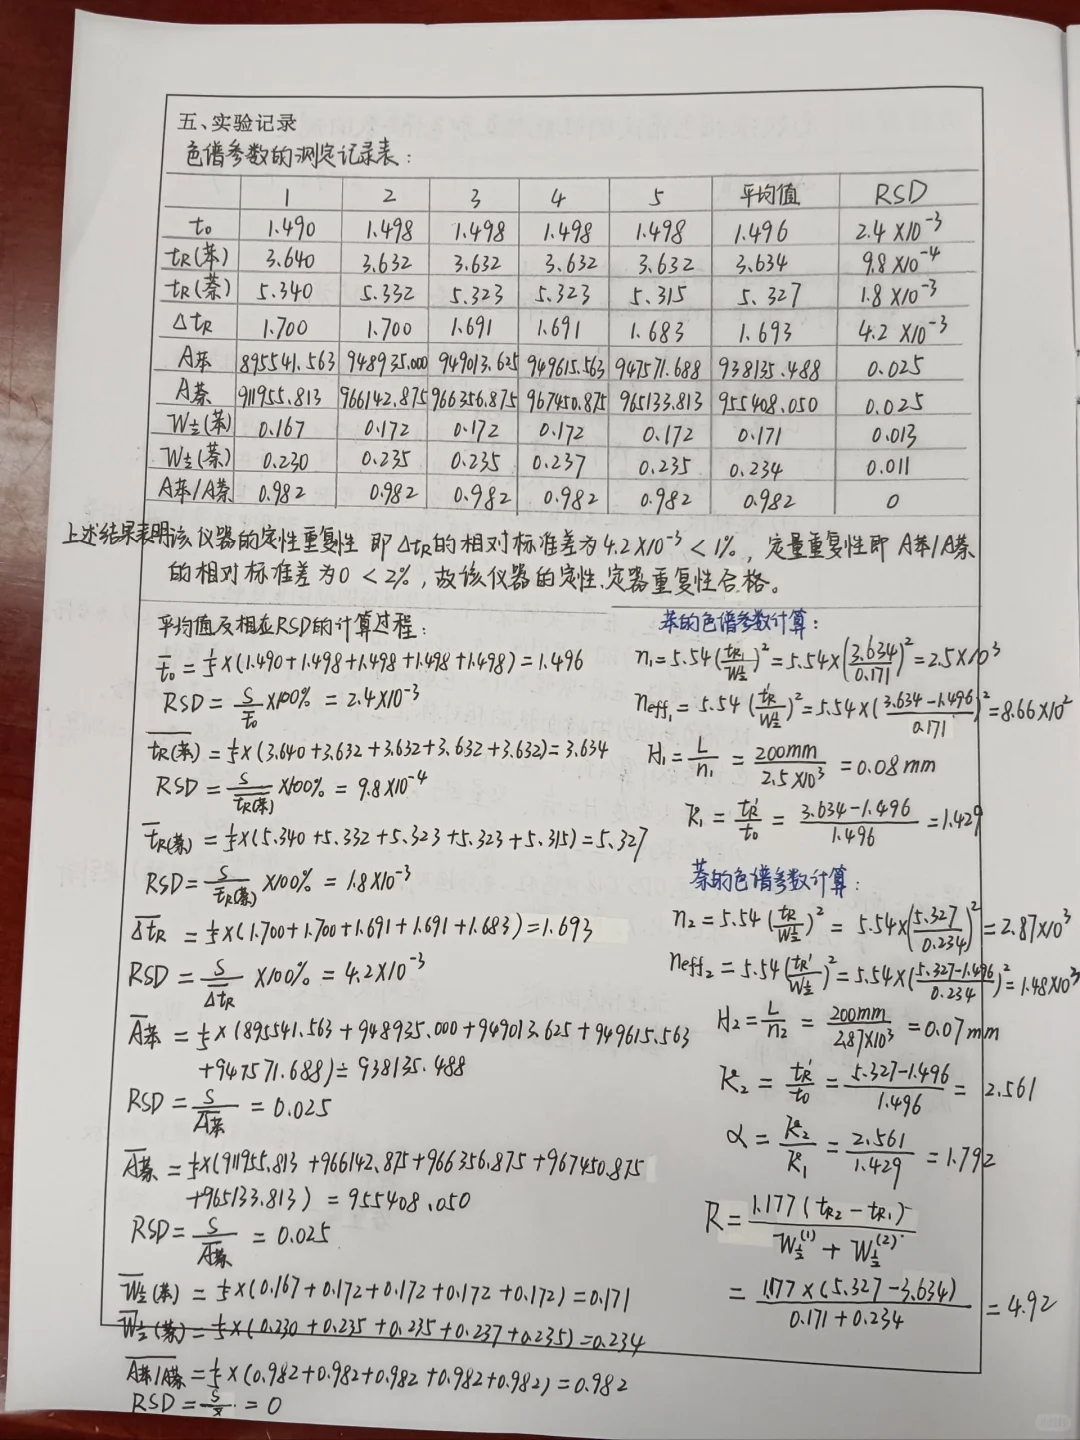 五、实验记录
色谱参数的测定记录表：
1 2 3 4 5 平均值 RSD
t₀ 1.490 1.498 1.498 1.498 1.498 1.496 2.4×10⁻³
tR(苯) 3.640 3.632 3.632 3.632 3.632 3.634 9.8×10⁻⁴
tR(萘) 5.340 5.332 5.323 5.323 5.315 5.327 1.8×10⁻³
ΔtR 1.700 1.700 1.691 1.691 1.683 1.693 4.2×10⁻³
A苯 895541.563 948935.000 949013.625 949615.563 947571.688 938135.488 0.025
A萘 911955.813 966142.875 966356.875 967450.875 965133.813 955408.050 0.025
W½(苯) 0.167 0.172 0.172 0.172 0.172 0.171 0.013
W½(萘) 0.230 0.235 0.235 0.237 0.235 0.234 0.011
A苯/A萘 0.982 0.982 0.982 0.982 0.982 0.982 0
上述结果表明该仪器的定性重复性即ΔtR的相对标准差为4.2×10⁻³<1%，定量重复性即A苯/A萘
的相对标准差为0<2%，故该仪器的定性、定器重复性合格。
平均值及相应RSD的计算过程：
t̄₀ = 1/5×(1.490+1.498+1.498+1.498+1.498)=1.496
RSD = S/t̄₀ ×100% = 2.4×10⁻³
tR(苯) = 1/5×(3.640+3.632+3.632+3.632+3.632)=3.634
RSD = S/tR(苯) ×100% = 9.8×10⁻⁴
tR(萘) = 1/5×(5.340+5.332+5.323+5.323+5.315)=5.327
RSD = S/tR(萘) ×100% = 1.8×10⁻³
ΔtR = 1/5×(1.700+1.700+1.691+1.691+1.683)=1.693
RSD = S/ΔtR ×100% = 4.2×10⁻³
A苯 = 1/5×(895541.563+948935.000+949013.625+949615.563
+947571.688)=938135.488
RSD = S/A苯 = 0.025
A萘 = 1/5×(911955.813+966142.875+966356.875+967450.875
+965133.813) = 955408.050
RSD = S/A萘 = 0.025
W½(苯) = 1/5×(0.167+0.172+0.172+0.172+0.172)=0.171
W½(萘) = 1/5×(0.230+0.235+0.235+0.237+0.235)=0.234
A苯/A萘 = 1/5×(0.982+0.982+0.982+0.982+0.982)=0.982
RSD = S/x̄ = 0
苯的色谱参数计算：
n₁=5.54(tR₁/W½)²=5.54×(3.634/0.171)²=2.5×10³
neff₁=5.54(tR'/W½)²=5.54×(3.634-1.496/0.171)²=8.66×10²
H₁=L/n₁=200mm/2.5×10³=0.08mm
k₁=tR'/t₀=3.634-1.496/1.496=1.429
萘的色谱参数计算：
n₂=5.54(tR/W½)²=5.54×(5.327/0.234)²=2.87×10³
neff₂=5.54(tR'/W½)²=5.54×(5.327-1.496/0.234)²=1.48×10³
H₂=L/n₂=200mm/2.87×10³=0.07mm
k₂=tR'/t₀=5.327-1.496/1.496=2.561
α=k₂/k₁=2.561/1.429=1.792
R=1.177(tR₂-tR₁)/W½⁽¹⁾+W½⁽²⁾
=1.177×(5.327-3.634)/0.171+0.234=4.92